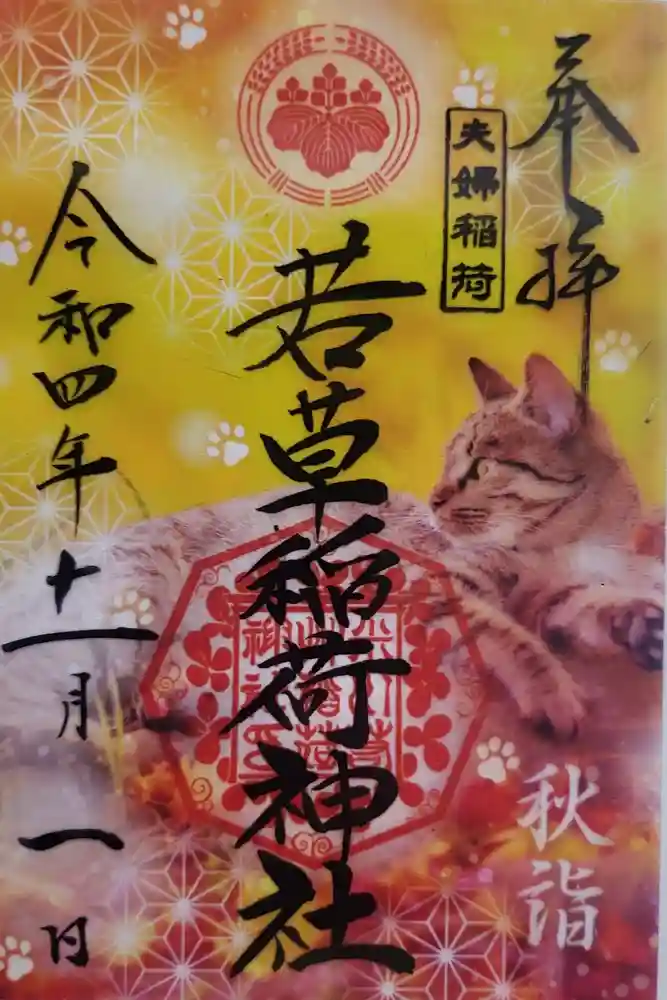 奉拝
夫婦稲荷
若草稲荷神社
秋詣
令和四年十一月一日